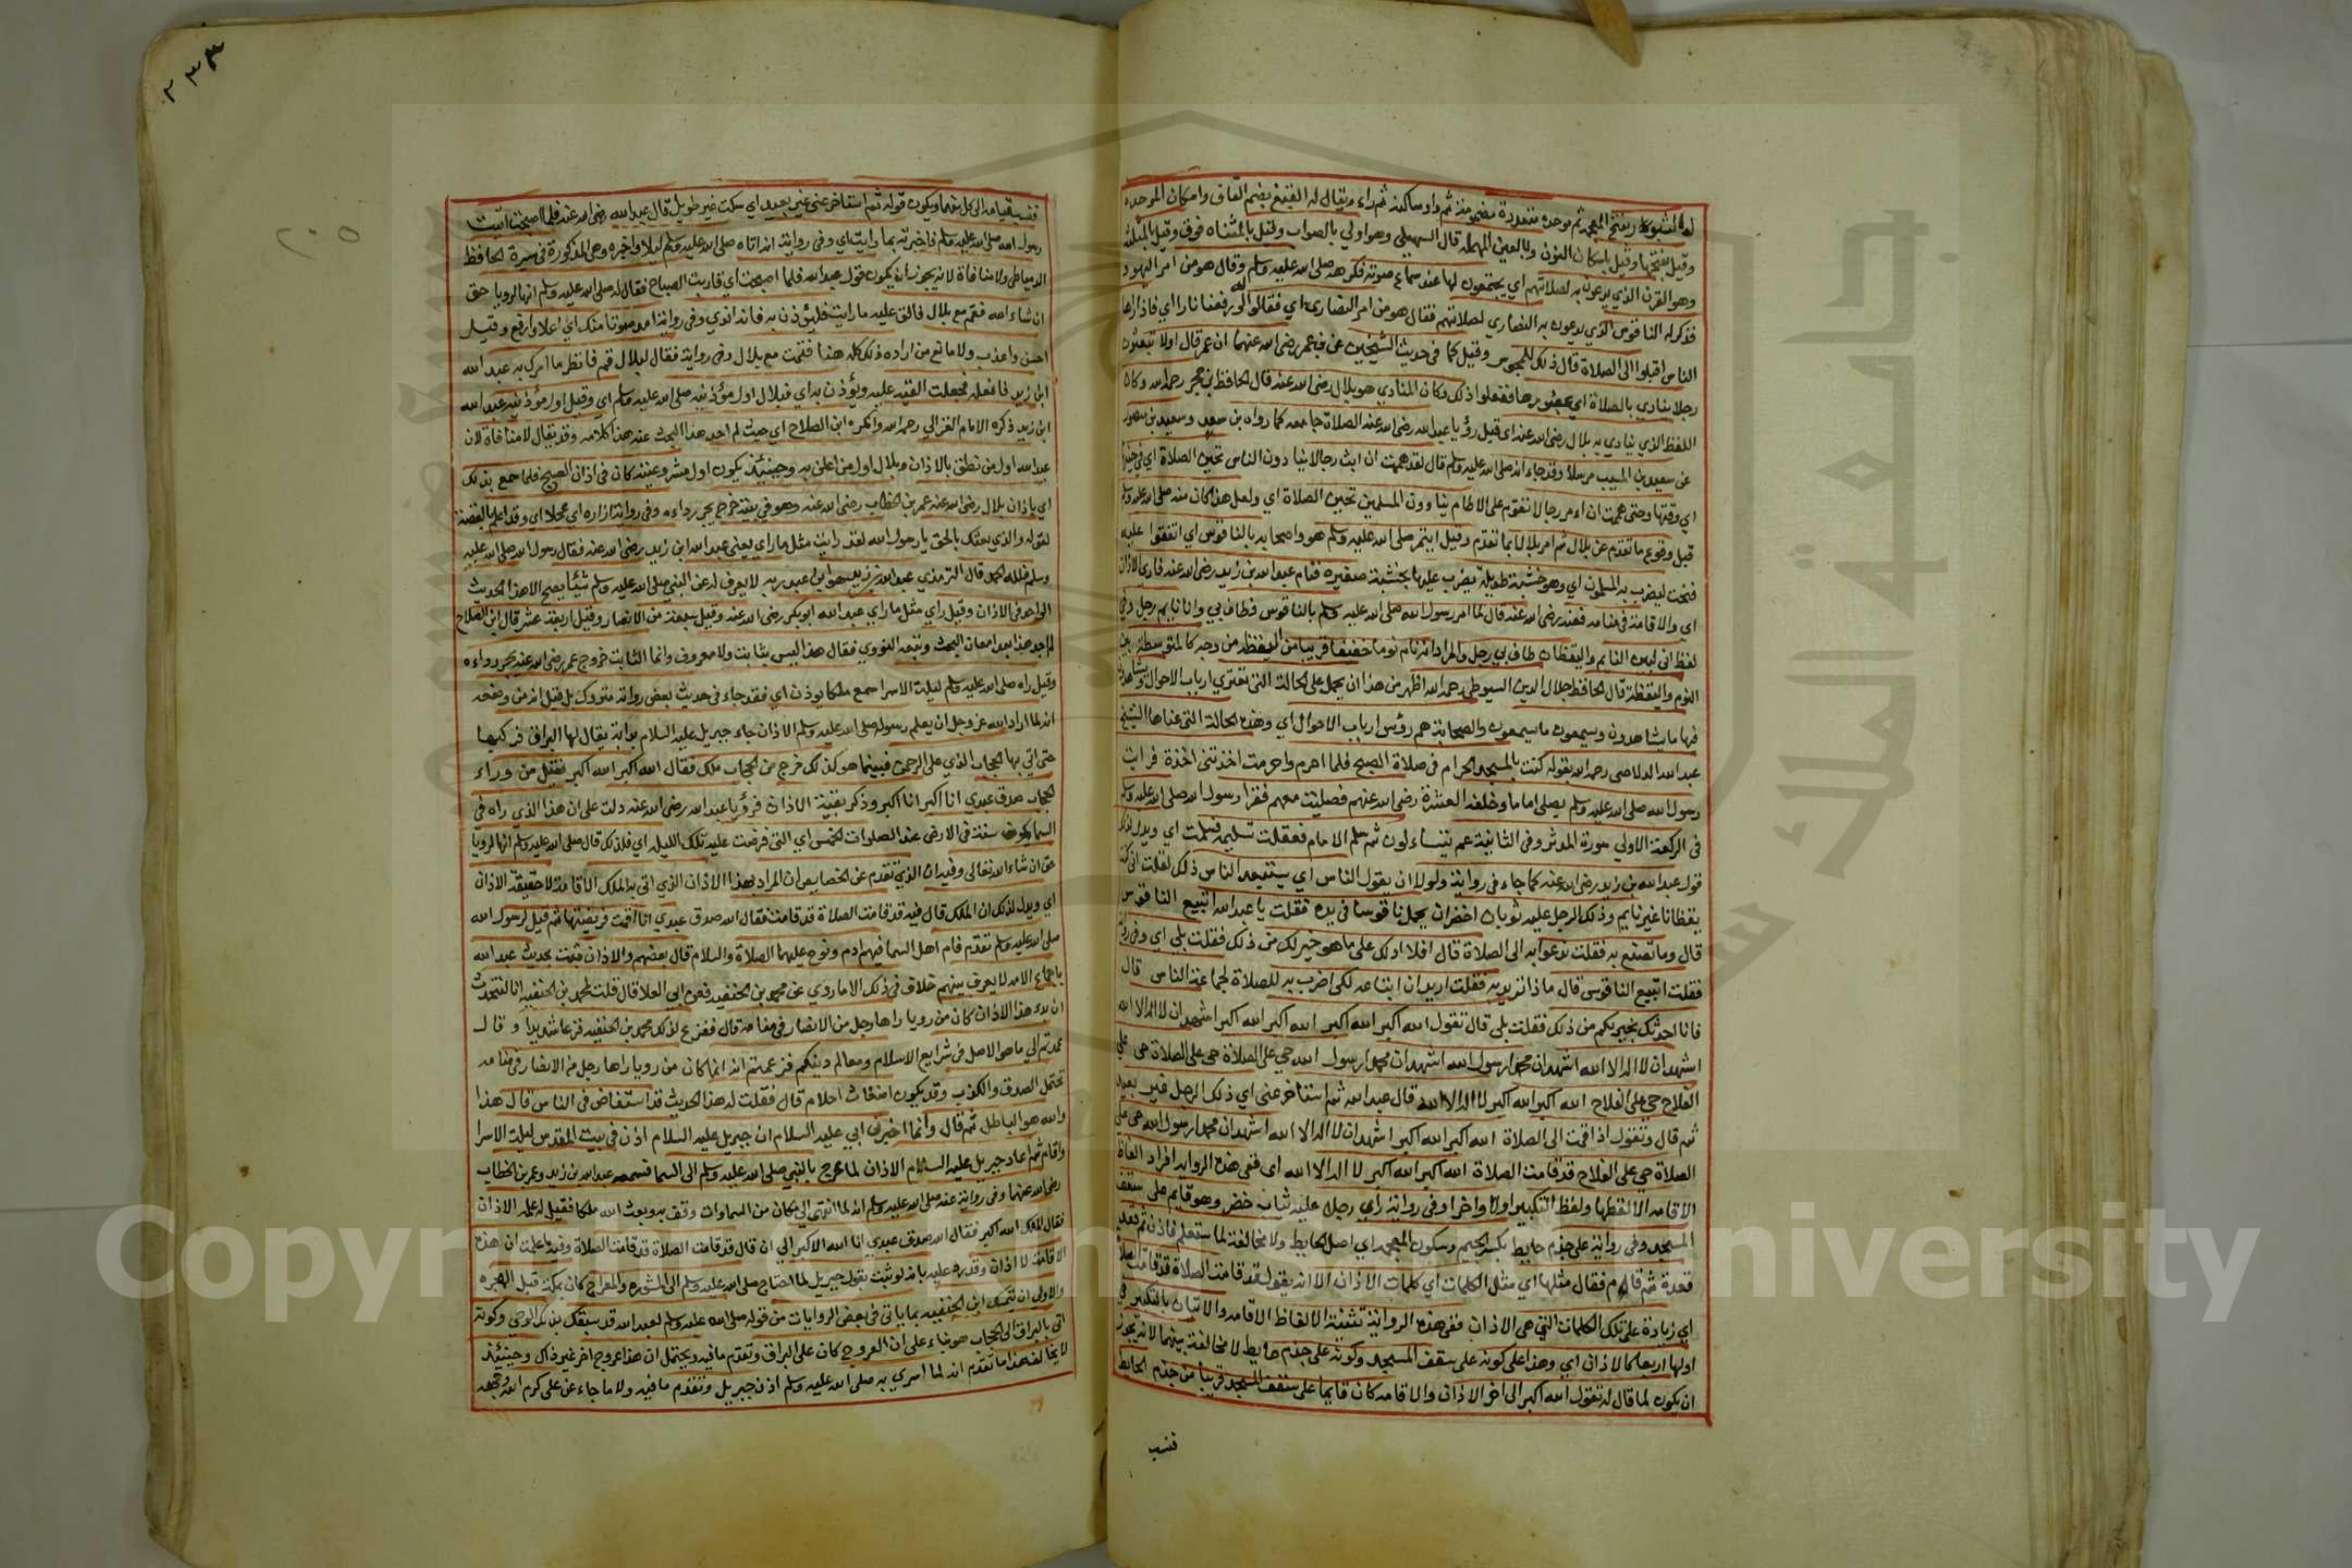 له الشبور بفتح المعجمة ثم موحدة مشددة مضمومة ثم واو ساكنة ثم راء ويقال له القبع بضم القاف واسكان الموحدة
وقيل بفتحها وقيل باسكان النون وبالعين المهملة قال السهيلي وهو اولي بالصواب وقيل بالمثناه فوق وقيل بالمثلثه
وهو القرن الذي يدعون به لصلاتهم اي يجتمعون لها عند سماع صوته فكرهه صلى الله عليه وسلم وقال هو من امر اليهود
فذكر له الناقوس الذي يدعون به النصاري لصلاتهم فقال هو من امر النصارى اي فقالوا لو رفعنا نارا اي فاذا راها
الناس اقبلوا الى الصلاة قال ذلك للمجوس وقيل كما في حديث الشيخين عن ابن عمر رضى الله عنهما ان عمر قال اولا تبعثون
رجلا ينادي بالصلاة اي بحضورها ففعلوا ذلك وكان المنادي هو بلال رضى الله عنه قال الحافظ بن حجر رحمه الله وكان
اللفظ الذي ينادي به بلال رضى الله عنه اي قبل رؤيا عبد الله رضى الله عنه الصلاة جامعه كما رواه بن سعد وسعيد بن منصور
عن سعيد بن المسيب مرسلا وقد جاء انه صلى الله عليه وسلم قال لقد هممت ان ابث رجالا ينادون الناس بحين الصلاة اي في حينها
اي وقتها وحتى هممت ان اءمر رجالا تقوم على الاطام ينادون المسلمين بحين الصلاة اي ولعل هذا كان منه صلى الله عليه وسلم
قبل وقوع ما تقدم عن بلال ثم امر بلالا بما تقدم وقيل ايتمر صلى الله عليه وسلم هو واصحابه بالناقوس اي اتفقوا عليه
فنحت ليضرب به المسلمون اي وهو خشبة طويلة يضرب عليها بخشبة صغيره فنام عبد الله بن زيد رضى الله عنه فاري الاذان
اي والاقامة في منامه فعنه رضى الله عنه قال لما امر رسول الله صلى الله عليه وسلم بالناقوس فطاف بي وانا نايم رجل وفي
لفظ اني لبين النايم واليقظان طاف بي رجل والمراد انه نام نوما خفيفا قريبا من اليقظه من وجه كالمتوسطة بين
النوم واليقظة قال الحافظ جلال الدين السيوطي رحمه الله اظهر من هذا ان يحمل على الحالة التي تعتري ارباب الاحوال ويشاهدون
فيها ما يشاهدون ويسمعون ما يسمعون والصحابة هم رؤس ارباب الاحوال اي وهذه الحالة التي عناها الشيخ
عبد الله الدلاصي رحمه الله بقوله كنت بالمسجد الحرام في صلاة الصبح فلما احرم واحرمت اخذتني اخذة فرايت
رسول الله صلى الله عليه وسلم يصلي اماما وخلفه العشرة رضى الله عنهم فصليت معهم فقرا رسول الله صلى الله عليه وسلم
في الركعة الاولي سورة المدثر وفي الثانية عم يتساءلون ثم سلم الامام فعقلت تسليمه فسلمت اي ويدل لذلك
قول عبد الله بن زيد رضى الله عنه كما جاء في رواية ولولا ان يقول الناس اي يستبعد الناس ذلك لقلت اني كنت
يقظانا غير نايم وذلك الرجل عليه ثوبان اخضران يحمل ناقوسا في يده فقلت يا عبد الله اتبيع الناقوس
قال وما تصنع به فقلت ندعوا به الى الصلاة قال افلا ادلك على ما هو خير لك من ذلك فقلت بلى اي وفي رواية
فقلت اتبيع الناقوس قال ماذا تريد به فقلت اريد ان ابتاعه لكي اضرب به للصلاة لجماعة الناس قال
فانا احدثك بخير لكم من ذلك فقلت بلى قال تقول الله اكبر الله اكبر الله اكبر الله اكبر اشهد ان لا اله الا الله
اشهد ان لا اله الا الله اشهد ان محمدا رسول الله اشهد ان محمدا رسول الله حي على الصلاة حي على الصلاة حي على
الفلاح حي على الفلاح الله اكبر الله اكبر لا اله الا الله قال عبد الله ثم استاخر عني اي ذلك الرجل غير بعيد
ثم قال وتقول اذا اقمت الى الصلاة الله اكبر الله اكبر اشهد ان لا اله الا الله اشهد ان محمدا رسول الله حي على
الصلاة حي على الفلاح قد قامت الصلاة الله اكبر الله اكبر لا اله الا الله اي ففي هذه الرواية افراد الفاظ
الاقامه الا لفظها ولفظ التكبير اولا واخرا وفي رواية راي رجل عليه ثياب خضر وهو قايم على سقف
المسجد وفي رواية على جذم حايط بكسر الجيم وسكون المعجمه اي اصل الحايط ولا مخالفة لما ستعلم فاذن ثم قعد
قعدة ثم قام فقال مثلها اي مثل الكلمات اي كلمات الاذان الا انه يقول قد قامت الصلاة قد قامت الصلاة
اي زيادة على تلك الكلمات التي هي الاذان ففي هذه الرواية تثنية الالفاظ الاقامه والاتيان بالتكبير في
اولها اربعا كالاذان اي وهذا على كونه على سقف المسجد وكونه على جذم حايط لا مخالفة بينهما لانه يجوز
ان يكون لما قال له تقول الله اكبر الى اخر الاذان والاقامه كان قايما على سقف المسجد قريبا من جذم الحايط
فنسب
٢٣٣
فنسب قيامه الى كل منهما ويكون قوله ثم استاخر عني غير بعيد اي سكت غير طويل قال عبد الله رضى الله عنه فلما اصبحت اتيت
رسول الله صلى الله عليه وسلم فاخبرته بما رايت اي وفي رواية انه اتاه صلى الله عليه وسلم ليلا واخبره وهي المذكورة في سيرة الحافظ
الدمياطي ولا منافاة لانه يجوز ان يكون قول عبد الله فلما اصبحت اي قاربت الصباح فقال له صلى الله عليه وسلم انها لرويا حق
ان شاء الله فقم مع بلال فالق عليه ما رايت فليؤذن به فانه اندي وفي رواية امد صوتا منك اي اعلا وارفع وقيل
احسن واعذب ولا مانع من ارادة ذلك كله هنا فقمت مع بلال وفي رواية فقال لبلال قم فانظر ما امرك به عبد الله
ابن زيد فافعله فجعلت القيه عليه ويؤذن به اي فبلال اول مؤذنيه صلى الله عليه وسلم اي وقيل اول مؤذنيه عبد الله
ابن زيد ذكره الامام الغزالي رحمه الله وانكره ابن الصلاح اي حيث لم اجد هذا البحث عنه هذا كلامه وقد يقال لا منافاة لان
عبد الله اول من نطق بالاذان وبلال اول من اعلن به وحينئذ يكون اول مشروعيته كان في اذان الصبح فلما سمع بذلك
اي باذان بلال رضى الله عنه عمر بن الخطاب رضى الله عنه وهو في بيته خرج يجر رداءه وفي رواية ازاره اي عجلا اي وقد اعلم بالقصة
لقوله والذي بعثك بالحق يا رسول الله لقد رايت مثل ما راي يعني عبد الله ابن زيد رضى الله عنه فقال رسول الله صلى الله عليه
وسلم فلله الحمد قال الترمذي عبد الله بن زيد هو ابن عبد ربه لا يعرف له عن النبي صلى الله عليه وسلم شيئا يصح الا هذا الحديث
الواحد في الاذان وقيل راي مثل ما راي عبد الله ابو بكر رضى الله عنه وقيل سبعة من الانصار وقيل اربعة عشر قال ابن الصلاح
لم اجد هذا بعد امعان البحث وتبعه النووي فقال هذا ليس بثابت ولا معروف وانما الثابت خروج عمر رضى الله عنه يجر رداءه
وقيل راه صلى الله عليه وسلم ليلة الاسرا سمع ملكا يوذن اي فقد جاء في حديث بعض رواته متروك بل قيل انه من وضعه
انه لما اراد الله عز وجل ان يعلم رسوله صلى الله عليه وسلم الاذان جاء جبريل عليه السلام بدابة يقال لها البراق فركبها
حتى اتي بها الحجاب الذي يلي الرحمن فبينما هو كذلك خرج من الحجاب ملك فقال الله اكبر الله اكبر فقيل من وراء
الحجاب صدق عبدي انا اكبر انا اكبر وذكر بقية الاذان فرؤيا عبد الله رضى الله عنه دلت على ان هذا الذي راه في
السما يكون سنة في الارض عند الصلوات الخمس اي التي فرضت عليه تلك الليله اي فلذلك قال صلى الله عليه وسلم انها لرويا
حق ان شاء الله تعالى وفيه ان الذي تقدم عن الخصايص ان المراد بهذا الاذان الذي اتي به الملك الاقامة لا حقيقة الاذان
اي ويدل لذلك ان الملك قال فيه قد قامت الصلاة قد قامت فقال الله صدق عبدي انا اقمت فريضتها ثم قيل لرسول الله
صلى الله عليه وسلم تقدم فام اهل السما فيهم ادم ونوح عليهما الصلاة والسلام قال بعضهم والاذان ثبت بحديث عبد الله
باجماع الامه لا يعرف بينهم خلاف في ذلك الا ما روي عن محمد بن الحنفيه فعن ابي العلا قال قلت لمحمد بن الحنفيه انا لنتحدث
ان بدء هذا الاذان كان من رويا راها رجل من الانصار في منامه قال ففزع لذلك محمد بن الحنفيه فزعا شديدا وقال
عمدتم الي ما هو الاصل في شرايع الاسلام ومعالم دينكم فزعمتم انه انما كان من رويا راها رجل من الانصار في منامه
تحتمل الصدق والكذب وقد يكون اضغاث احلام قال فقلت له هذا الحديث قد استفاض في الناس قال هذا
والله هو الباطل ثم قال وانما اخبرني ابي عليه السلام ان جبريل عليه السلام اذن في بيت المقدس ليلة الاسرا
واقام ثم اعاد جبريل عليه السلام الاذان لما عرج بالنبي صلى الله عليه وسلم الى السما فسمعه عبد الله بن زيد وعمر بن الخطاب
رضى الله عنهما وفي رواية عنه صلى الله عليه وسلم انه لما انتهى الي مكان من السماوات وقف به وبعث الله ملكا فقيل له علمه الاذان
فقال الملك الله اكبر فقال الله صدق عبدي انا الله الاكبر الي ان قال قد قامت الصلاة قد قامت الصلاة وفيه ما علمت ان هذه
الاقامة لا اذان وقد رد عليه بانه لو ثبت بقول جبريل لما احتاج صلى الله عليه وسلم الى المشورة والمعراج كان بمكة قبل الهجره
والاولي ان يتمسك ابن الحنفيه بما ياتي في بعض الروايات من قوله صلى الله عليه وسلم لعبد الله قد سبقك بذلك الوحي وكونه
اتي بالبراق الى الحجاب هو بناء على ان العروج كان على البراق وتقدم ما فيه ويحتمل ان هذا عروج اخر غير ذاك وحينئذ
لا يخالف هذا ما تقدم انه لما اسري به صلى الله عليه وسلم اذن جبريل وتقدم ما فيه ولا ما جاء عن علي كرم الله وجهه
جامعة الملك سعود
Copyright © King Saud University